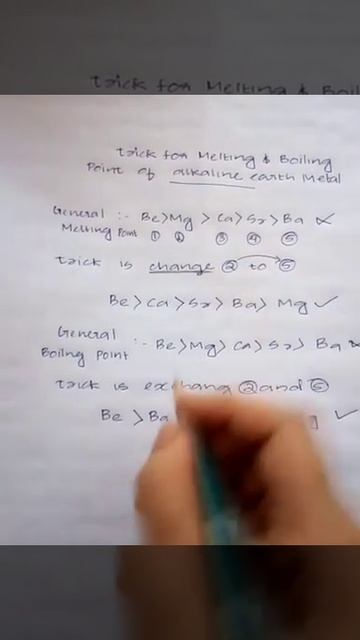 trick for Melting & Boil
trick for Melting & Boiling
Point of alkaline earth Metal
General :- Be>Mg > Ca> Sr> Ba ×
Melting Point ① ② ③ ④ ⑤
trick is change ② to ⑤
Be> Ca> Sr> Ba> Mg ✓
General :- Be>Mg> Ca> Sr> Ba
Boiling Point
trick is exchang ② and ⑤
Be > Ba ✓